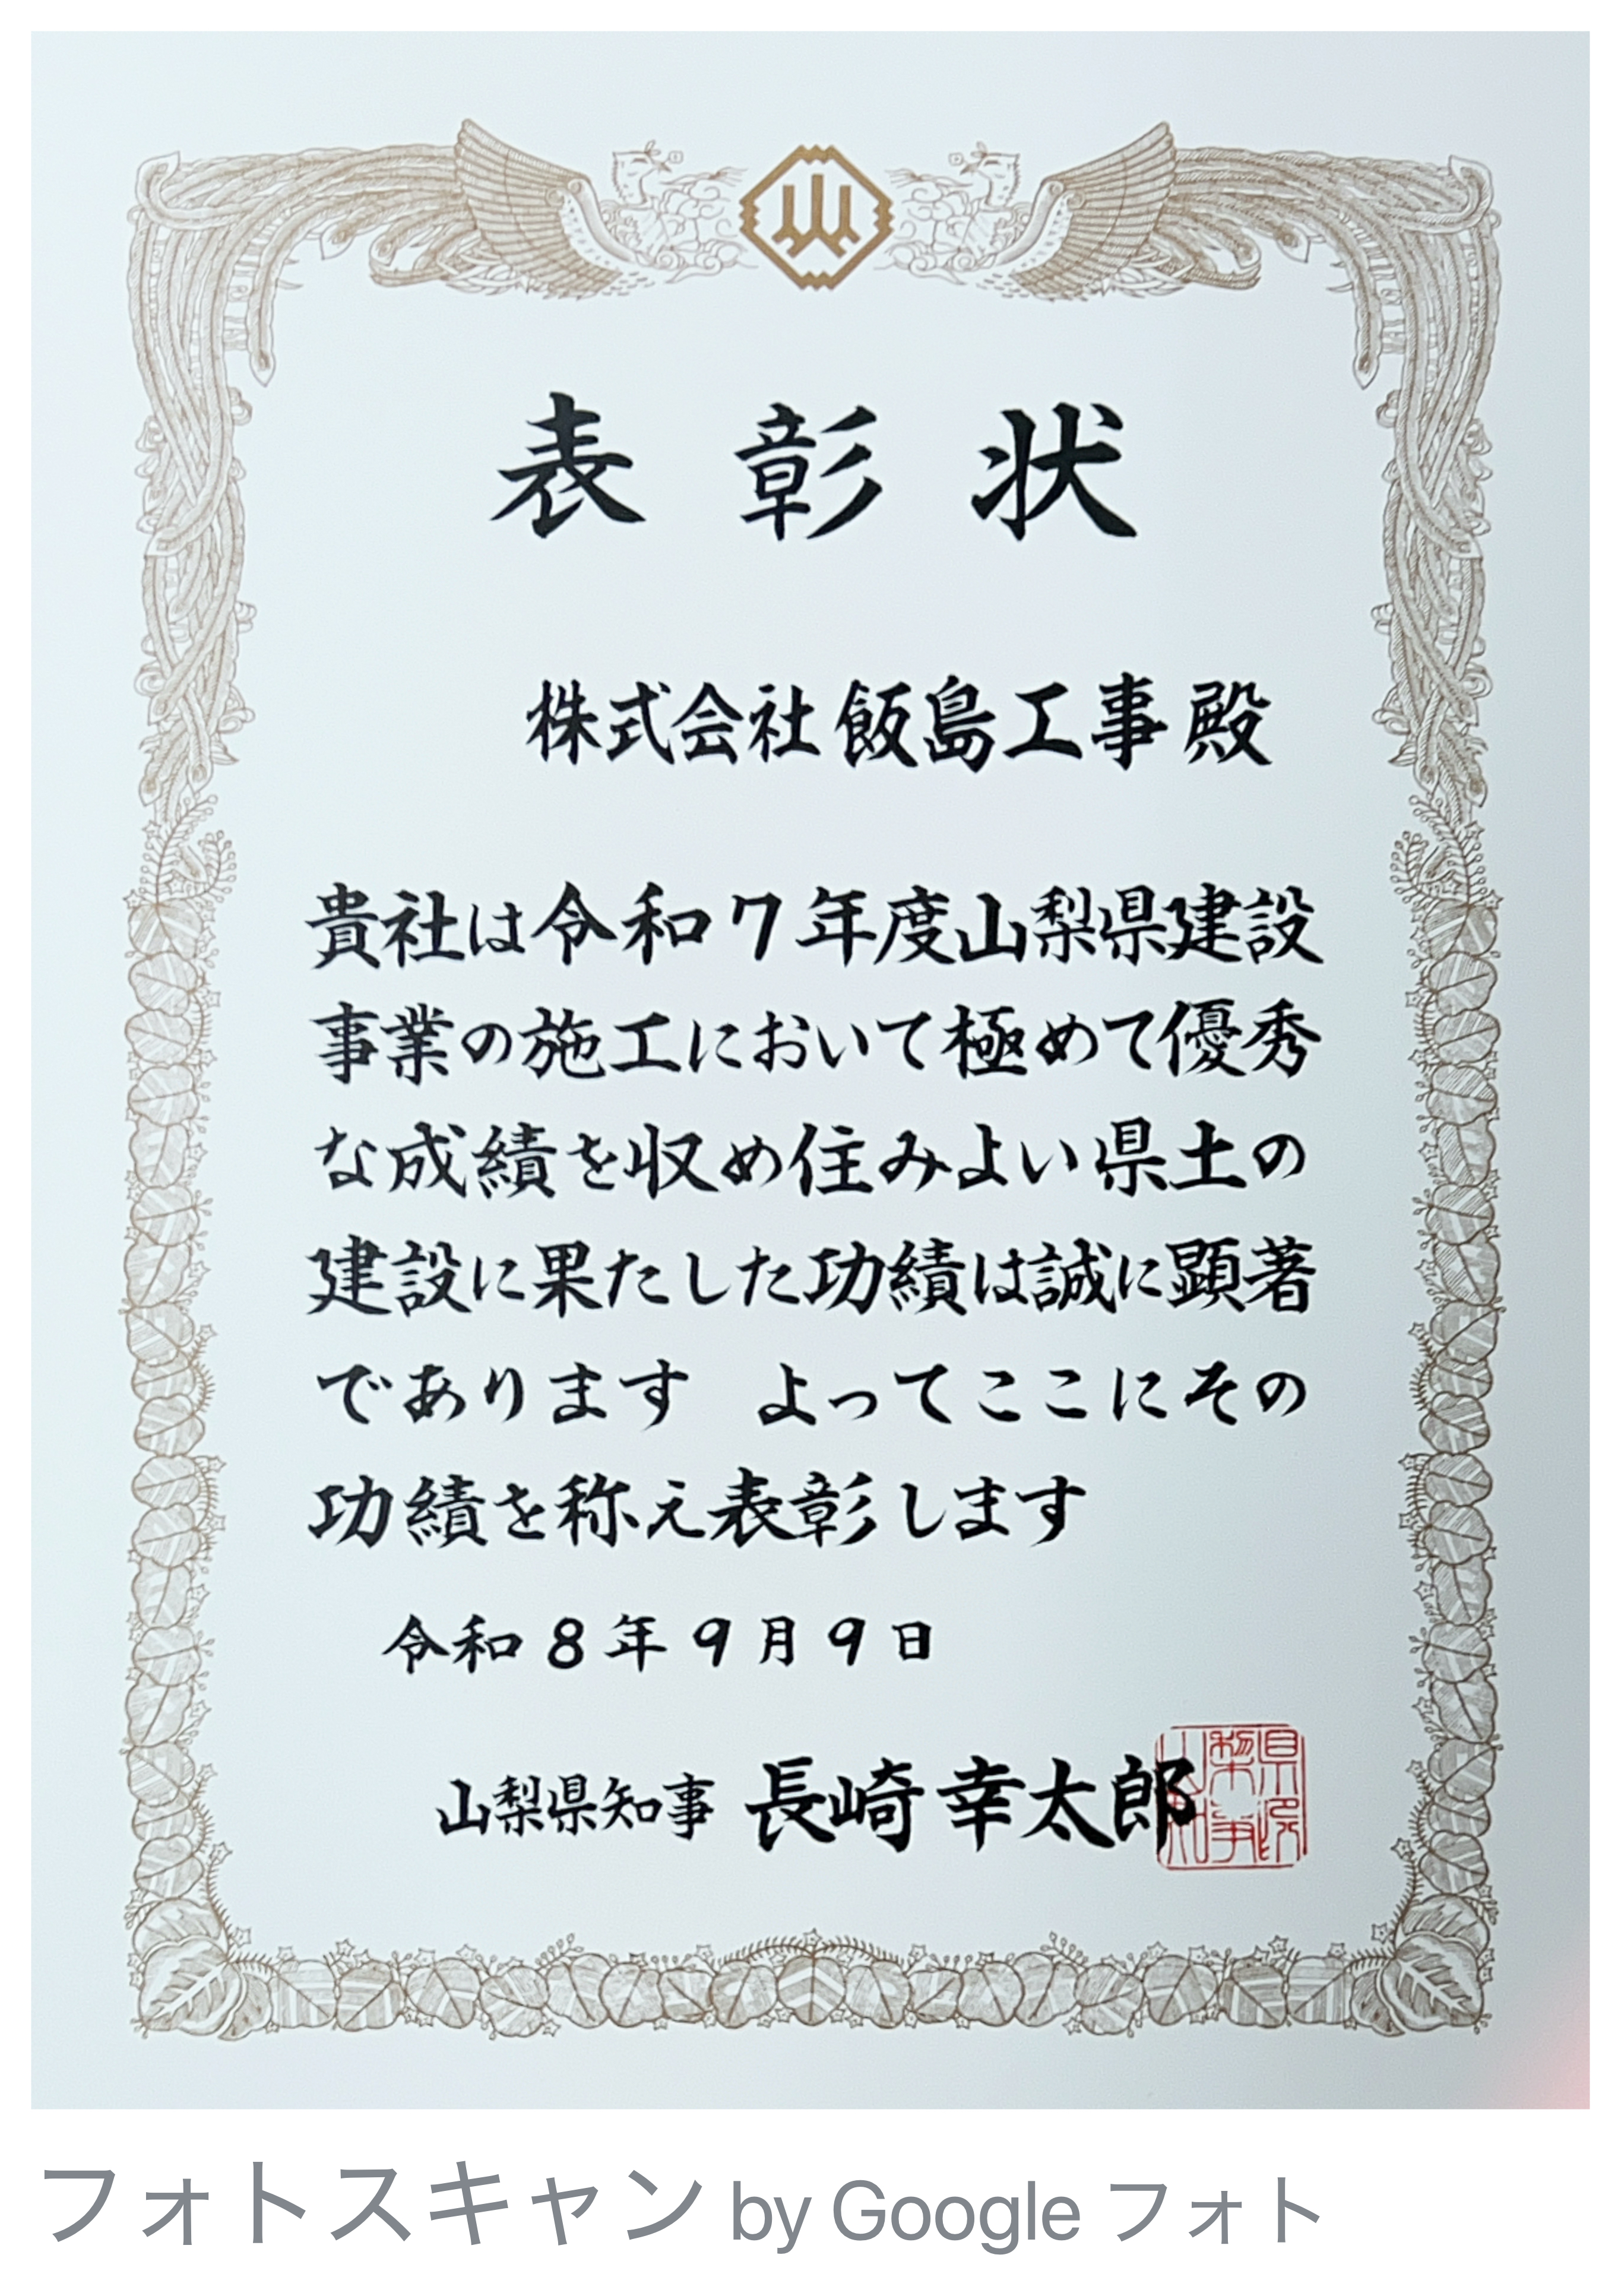 山
表彰状
株式会社飯島工事殿
貴社は令和7年度山梨県建設
事業の施工において極めて優秀
な成績を収め住みよい県土の
建設に果たした功績は誠に顕著
であります よってここにその
功績を称え表彰します
令和8年9月9日
山梨県知事 長崎幸太郎
フォトスキャン by Google フォト